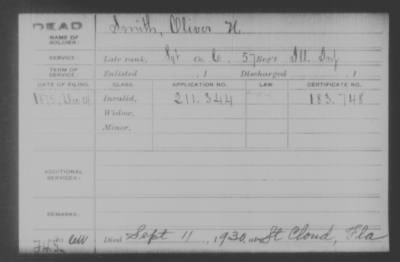 DEAD
NAME OF SOLDIER: Smith, Oliver H.
SERVICE: Late rank, Sgt Co. C. 57 Reg't Ill. Inf
TERM OF SERVICE: Enlisted , 1 Discharged , 1
DATE OF FILING. CLASS. APPLICATION NO. LAW CERTIFICATE NO.
1875, Invalid, 211.344 183.748
Widow,
Minor,
ADDITIONAL SERVICES:
REMARKS:
Died Sept 11, 1930, at St Cloud, Fla